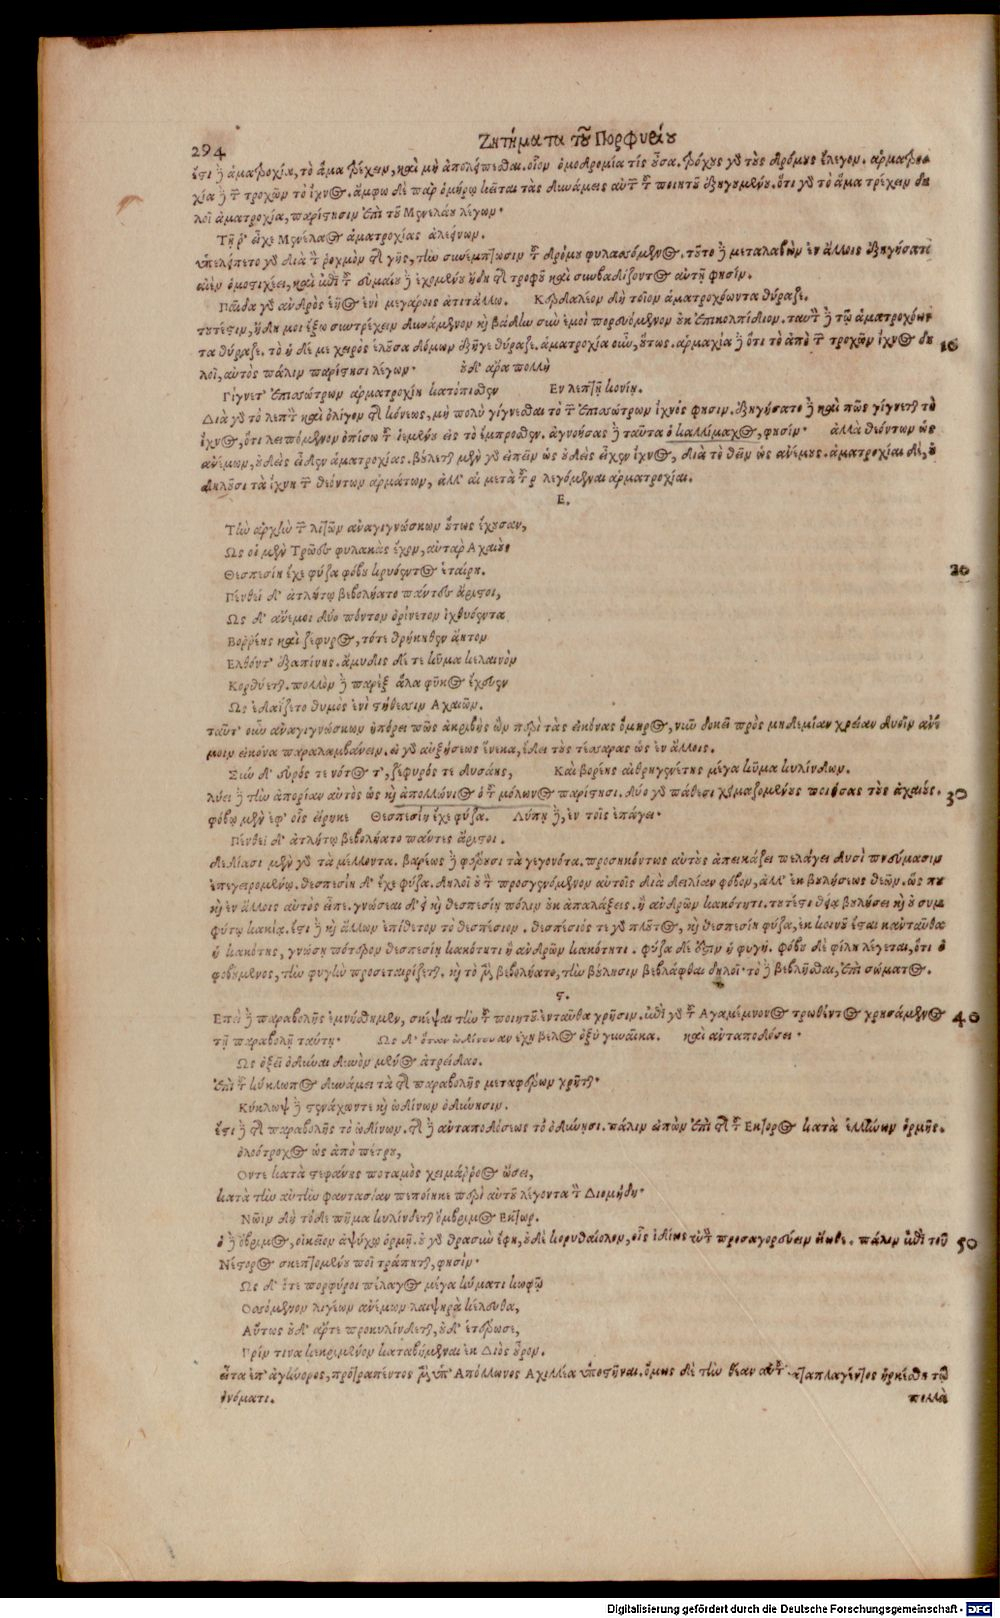 294
Ζητήματα τοῦ Πορφυρίου
ἔτι ἢ ἁματροχία, τὸ ἅμα τρέχειν, καὶ μὴ ἀπολείπεσθαι. οἷον ὁμοδρομία τίς οὖσα. τρόχους γὰρ τοὺς δρόμους ἔλεγον. ἁρματρο
χία δὲ τῶν τροχῶν τὸ ἴχνος. ἄμφω δὲ παρ' ὁμήρῳ κεῖται τὰς δυνάμεις αὐτῶν τοῦ ποιητοῦ ἐξηγουμένου. ὅτι γὰρ τὸ ἅμα τρέχειν δη
λοῖ ἁματροχία, παρίστησιν ἐπὶ τοῦ Μενελάου λέγων·
Τῇ ῥ' εἶχε Μενέλαος ἁματροχίας ἀλεείνων.
ὑπελείπετο γὰρ διὰ τὸν ῥοχμὸν τῆς γῆς, τὴν συνέμπτωσιν τοῦ δρόμου φυλασσόμενος. τοῦτο δὲ μεταλαβὼν ἐν ἄλλοις ἐξηγήσατο
Παῖδα γὰρ ἀνδρὸς ἑῆος ἐνὶ μεγάροις ἀτιτάλλω. Κερδαλέον δὴ τοῖον ἁματροχόωντα θύραζε.
τουτέστιν, ἤδη μοι ἔξω συντρέχειν δυνάμενον καὶ βάδην σὺν ἐμοὶ πορευόμενον οὐκ ἐπικολπίδιον. ταυτὸν δὲ τῷ ἁματροχόων
τα θύραζε. τὸ ἡ δέ με χειρὸς ἑλοῦσα δόμων ἐξῆγε θύραζε. ἁματροχία οὖν, οὕτως. ἁρμαχία δὲ ὅτι τὸ ἀπὸ τῶν τροχῶν ἴχνος δη 10
λοῖ, αὐτὸς πάλιν παρίστησι λέγων· οὐδ' ἄρα πολλὴ
Γίγνετ' ἐπισσώτρων ἁρματροχίη κατόπισθεν Ἐν λεπτῇ κονίῃ.
Διὰ γὰρ τὸ λεπτὸν καὶ ὀλίγον τῆς κόνεως, μὴ πολὺ γίγνεσθαι τὸ τῶν ἐπισσώτρων ἴχνός φησιν. ἐξηγήσατο δὲ καὶ πῶς γίγνεται τὸ
ἴχνος, ὅτι λειπόμενον ὀπίσω τοῦ ἱεμένου εἰς τὸ ἔμπροσθεν. ἀγνοήσας δὲ ταῦτα ὁ καλλίμαχος, φησίν· ἀλλὰ θεόντων ὡς
ἀνέμων, οὐδεὶς εἶδεν ἁματροχίας. βούλεται μὲν γὰρ εἰπεῖν ὡς οὐδεὶς εἶχεν ἴχνος, διὰ τὸ θεῖν ὡς ἀνέμους. ἁματροχίαι δὲ, οὐ
δηλοῦσι τὰ ἴχνη τῶν θεόντων ἁρμάτων, ἀλλ' αἱ μετὰ τοῦ ρ λεγόμεναι ἁρματροχίαι.
Ε.
Τὴν ἀρχὴν τῶν λιτῶν ἀναγιγνώσκων οὕτως ἔχουσαν,
Ως οἱ μὲν Τρῶες φυλακὰς ἔχον, αὐτὰρ Αχαιοὺς
Θεσπεσίη ἔχε φύζα φόβου κρυόεντος ἑταίρη. 20
Πένθεϊ δ' ἀτλήτῳ βεβολήατο πάντες ἄριστοι,
Ως δ' ἄνεμοι δύο πόντον ὀρίνετον ἰχθυόεντα
Βορρέης καὶ ζέφυρος, τότε θρήκηθεν ἄητον
Ελθόντ' ἐξαπίνης. ἄμυδις δέ τε κῦμα κελαινὸν
Κορθύεται. πολλὸν δὲ παρὲξ ἅλα φῦκος ἔχευεν
Ως ἐδαΐζετο θυμὸς ἐνὶ στήθεσσιν Αχαιῶν.
ταῦτ' οὖν ἀναγιγνώσκων ἠπόρει πῶς ἀκριβὴς ὢν περὶ τὰς εἰκόνας ὅμηρος, νῦν δοκεῖ πρὸς μηδεμίαν χρείαν δυοῖν ἀνέ
μοιν εἰκόνα παραλαμβάνειν. εἰ γὰρ αὐξήσεως ἕνεκα, ἔδει τοὺς τέσσαρας ὡς ἐν ἄλλοις.
Σὺν δ' εὖρός τε νότος τ', ζέφυρός τε δυσαὴς, Καὶ βορέης αἰθρηγενέτης μέγα κῦμα κυλίνδων.
λύει δὲ τὴν ἀπορίαν αὐτὸς ὡς καὶ ἀπολλώνιος ὁ τοῦ μόλωνος παρίστησι. δύο γὰρ πάθεσι χειμαζομένους ποιήσας τοὺς ἀχαιούς. 30
φόβῳ μὲν ἐφ' οἷς εἴρηκε Θεσπεσίη ἔχε φύζα. Λύπῃ δὲ, ἐν τοῖς ἐπάγει·
Πένθεϊ δ' ἀτλήτῳ βεβολήατο πάντες ἄριστοι.
δεδίασι μὲν γὰρ τὰ μέλλοντα. βαρέως δὲ φέρουσι τὰ γεγονότα. προσηκόντως αὐτοὺς ἀπεικάζει πελάγει δυσὶ πνεύμασιν
ἐπεγειρομένῳ. θεσπεσίη δ' ἔχε φύζα. δηλοῖ οὐ τὸν προσγενόμενον αὐτοῖς διὰ δειλίαν φόβον, ἀλλ' ἐκ βουλήσεως θεῶν. ὥς που
καὶ ἐν ἄλλοις αὐτὸς εἶπε. γνώσεαι δ' εἰ καὶ θεσπεσίῃ πόλιν οὐκ ἀπαλάξεις. ἢ ἀνδρῶν κακότητι. τουτέστι θείᾳ βουλήσει καὶ οὐ συμ
φύτῳ κακίᾳ. ἔτι δὲ καὶ ἄλλων ἐπίθετον τὸ θεσπέσιον. θεσπέσιός τε γὰρ πλοῦτος, καὶ θεσπεσίη φύζα, ἐκ κοινοῦ ἔσται κἀνταῦθα
ἡ κακότης, γνώσῃ πότερον θεσπεσίῃ κακότητι ἢ ἀνδρῶν κακότητι. φύζα δέ ἐστιν ἡ φυγή. φόβου δὲ φίλη λέγεται, ὅτι ὁ
φοβούμενος, τὴν φυγὴν προσεταιρίζεται. καὶ τὸ μὲν βεβολήατο, τὴν βούλησιν βεβλάφθαι δηλοῖ· τὸ δὲ βεβλῆσθαι, ἐπὶ σώματος.
ς.
Επεὶ δὲ παραβολῆς ἐμνήσθημεν, σκέψαι τὴν τοῦ ποιητοῦ ἐνταῦθα χρῆσιν. ἐπὶ γὰρ τοῦ Αγαμέμνονος τρωθέντος χρησάμενος 40
τῇ παραβολῇ ταύτῃ· Ως δ' ὅταν ὠδίνουσαν ἔχῃ βέλος ὀξὺ γυναῖκα. καὶ ἀνταποδόσει·
Ως ὀξεῖ ὀδύναι δῦνον μένος ἀτρείδαο.
ἐπὶ τοῦ κύκλωπος δυνάμει τὰ τῆς παραβολῆς μεταφέρων χρῆται·
Κύκλωψ δὲ στενάχων τε καὶ ὠδίνων ὀδύνησιν.
ἔστι δὲ τῆς παραβολῆς τὸ ὠδίνων. τῆς δὲ ἀνταποδόσεως τὸ ὀδύνῃσι. πάλιν εἰπὼν ἐπὶ τῆς τοῦ Εκτορος κατὰ ἑλλήνων ὁρμῆς.
ὀλοότροχος ὡς ἀπὸ πέτρου,
Ον τε κατὰ στεφάνης ποταμὸς χειμάρροος ὤσει,
κατὰ τὴν αὐτὴν φαντασίαν πεποίηκε περὶ αὐτοῦ λέγοντα τὸν Διομήδη·
Νῶϊν δὴ τόδε πῆμα κυλίνδεται ὄμβριμος Εκτωρ.
Νέστορος σκεπτομένου ποῖ τράπηται, φησίν· 50
Ως δ' ὅτε πορφύροι πέλαγος μέγα κύματι κωφῷ
Οσσόμενον λιγέων ἀνέμων λαιψηρὰ κέλευθα,
Αὔτως οὐδ' ἄρτε προκυλίνδεται, οὐδ' ἑτέρωσε,
Πρίν τινα κεκριμένον καταβήμεναι ἐκ Διὸς οὖρον.
ὀνόματι.
πολλὰ
Digitalisierung gefördert durch die Deutsche Forschungsgemeinschaft - DFG